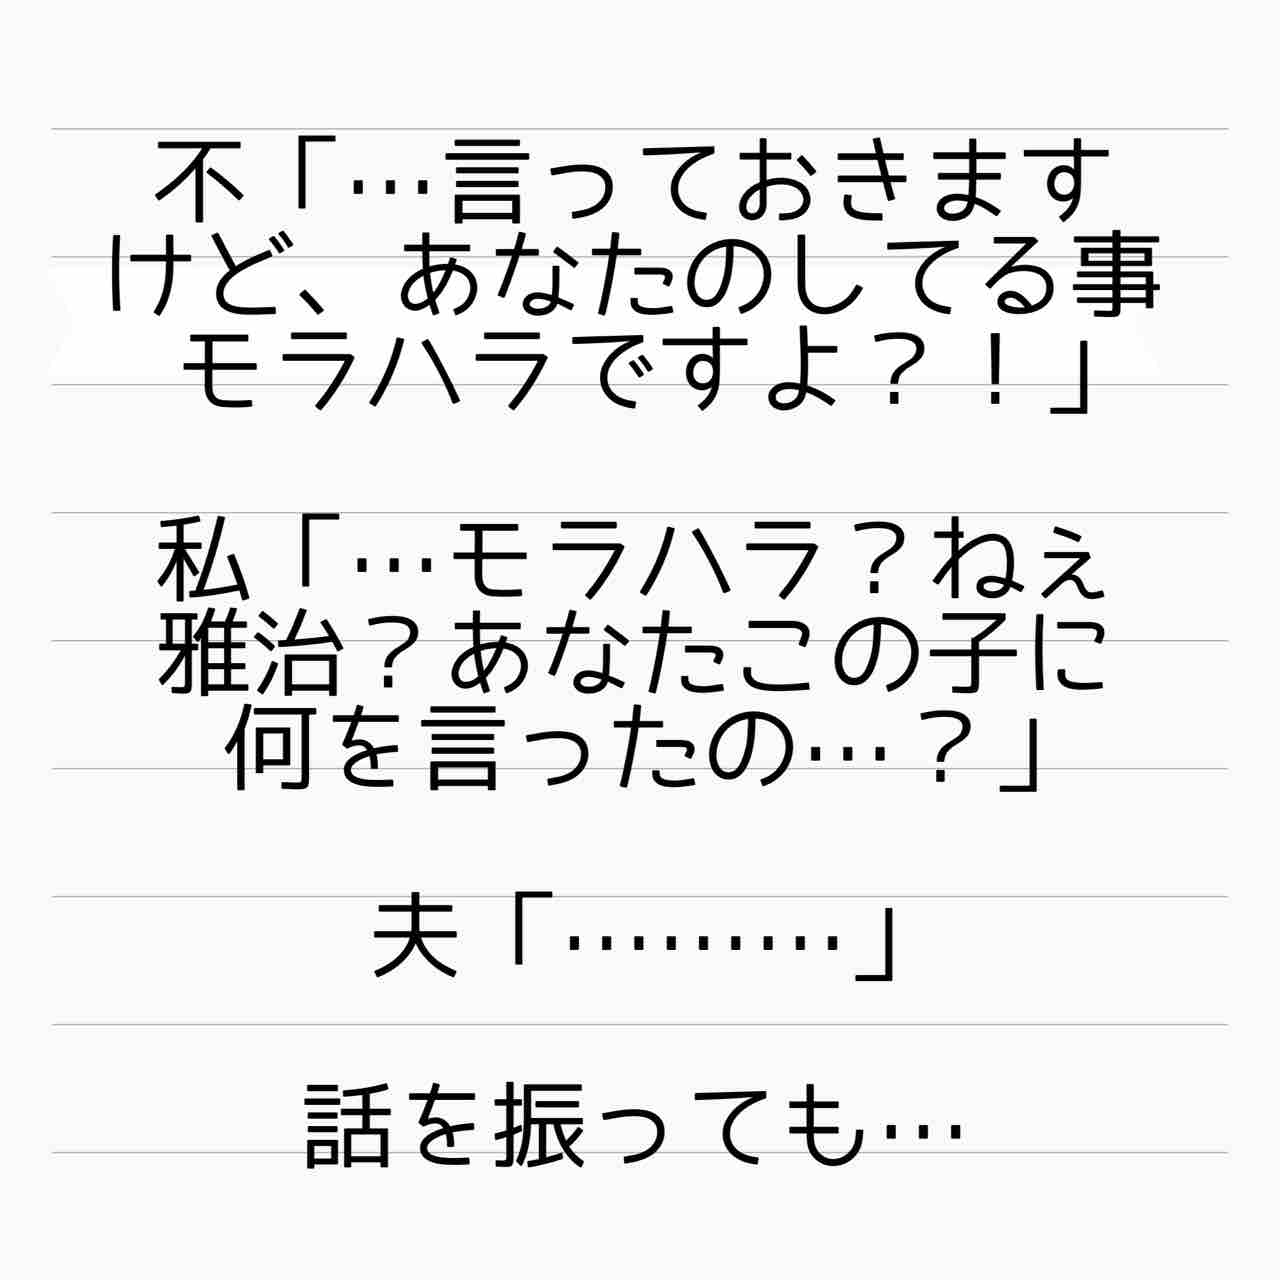 不「…言っておきます
けど、あなたのしてる事
モラハラですよ？！」
私「…モラハラ？ねぇ
雅治？あなたこの子に
何を言ったの…？」
夫「………」
話を振っても…